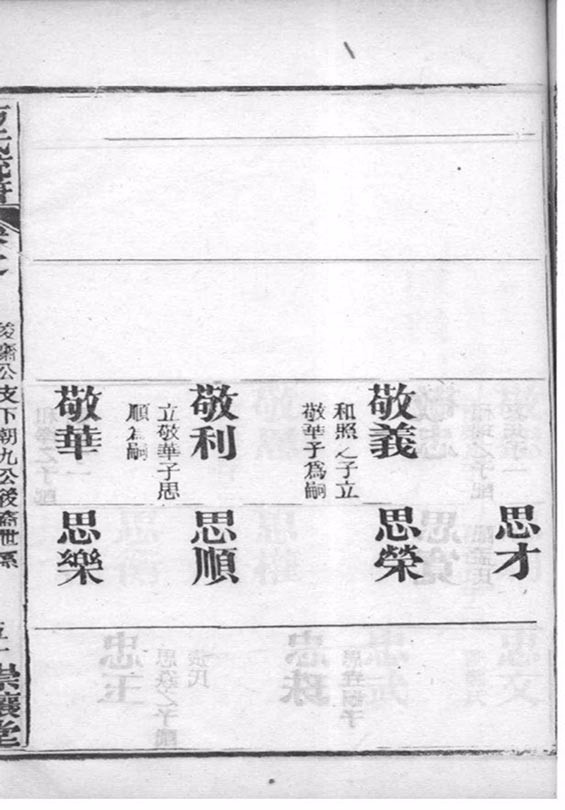 思才
敬義
和照之子立
敬華子爲嗣
思榮
敬利
立敬華子思
順爲嗣
思順
敬華
思樂
公支下朝九公後裔世系
崇讓堂